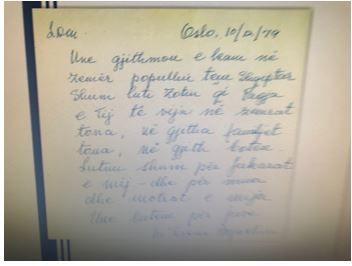 Oslo, 10/12/79
Une gjithmon e kam në
zemër popullin tem Shqiptar
Shum luti Zotin që Paqja
e Tij te vijn në zemrat
tona, në gjitha familjet
tona, në gjith botën.
Lutuni shum për fukarat
e mij - dhe për mua
dhe motrat e mija
Une lutem për juve